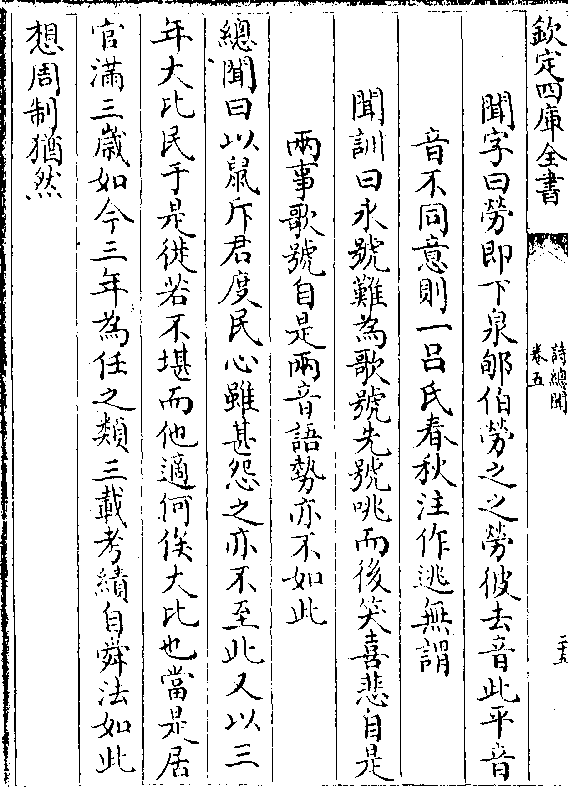 欽定四庫全書
詩總聞
卷五
二五
聞字曰勞即下泉郇伯勞之之勞彼去音此平音
音不同意則一呂氏春秋注作逃無謂
聞訓曰永號難為歌號先號咷而後笑喜悲自是
兩事歌號自是兩音語勢亦不如此
總聞曰以鼠斥君度民心雖甚怨之亦不至此又以三
年大比民于是徙若不堪而他適何俟大比也當是居
官滿三歲如今三年為任之類三載考績自舜法如此
想周制猶然